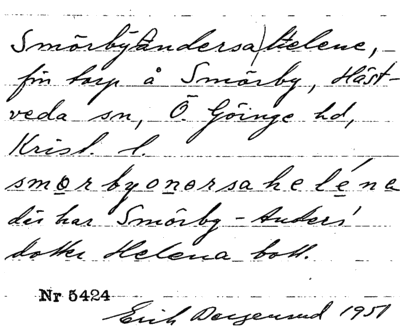 Smörby(andersa)Helene,
fin torp å Smörby, Häst-
veda sn, Ö. Göinge hd,
Krist. l.
smørbyonørsaheléna
där har Smörby-Anders'
dotter Helena bott.
Nr 5424
Erik 1951